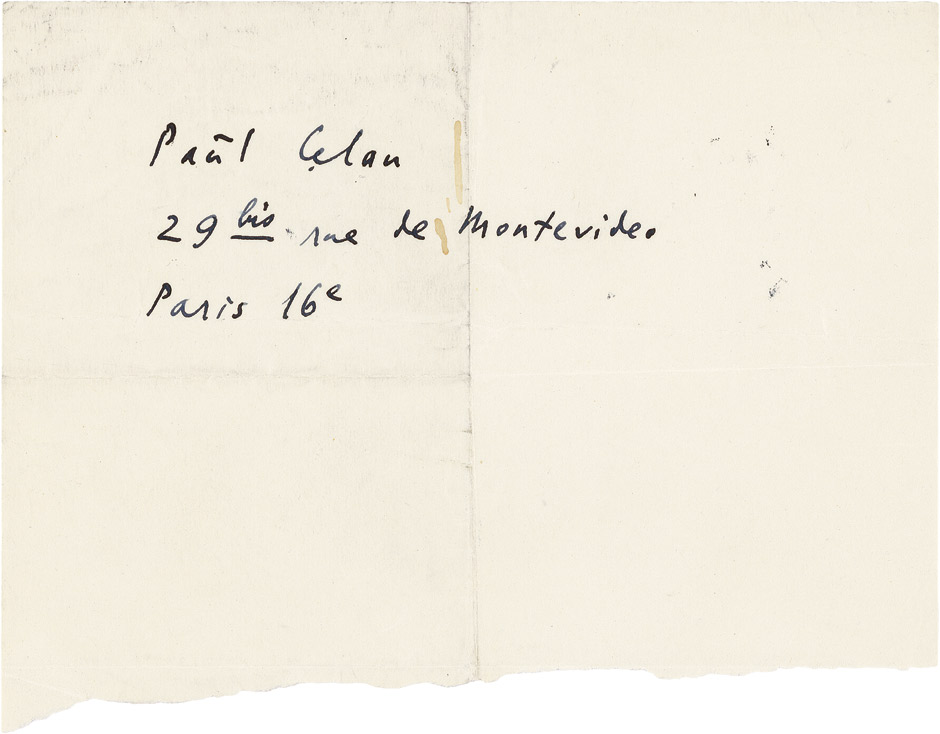 Paul Celan
29 bis rue de Montevideo
Paris 16e